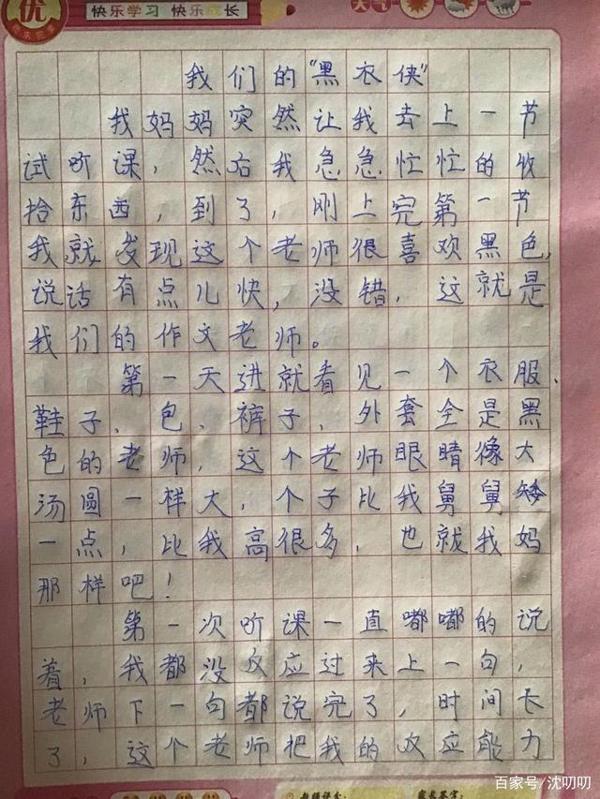 优
快乐学习 快乐成长
天气
我们的"黑衣侠"
我妈妈突然让我去上一节
试听课，然后我急急忙忙的收
拾东西，到了，刚上完第一节
我就发现这个老师很喜欢黑色，
说话有点儿快，没错，这就是
我们的作文老师。
第一天进就看见一个衣服、
鞋子，包，裤子，外套全是黑
色的老师，这个老师眼睛像大
汤圆一样大，个子比我舅舅矮
一点，比我高很多，也就我妈
那样吧！
第一次听课一直嘟嘟的说
着，我都没反应过来上一句，
老师下一句都说完了，时间长
了，这个老师把我的反应能力
百家号/沈叨叨